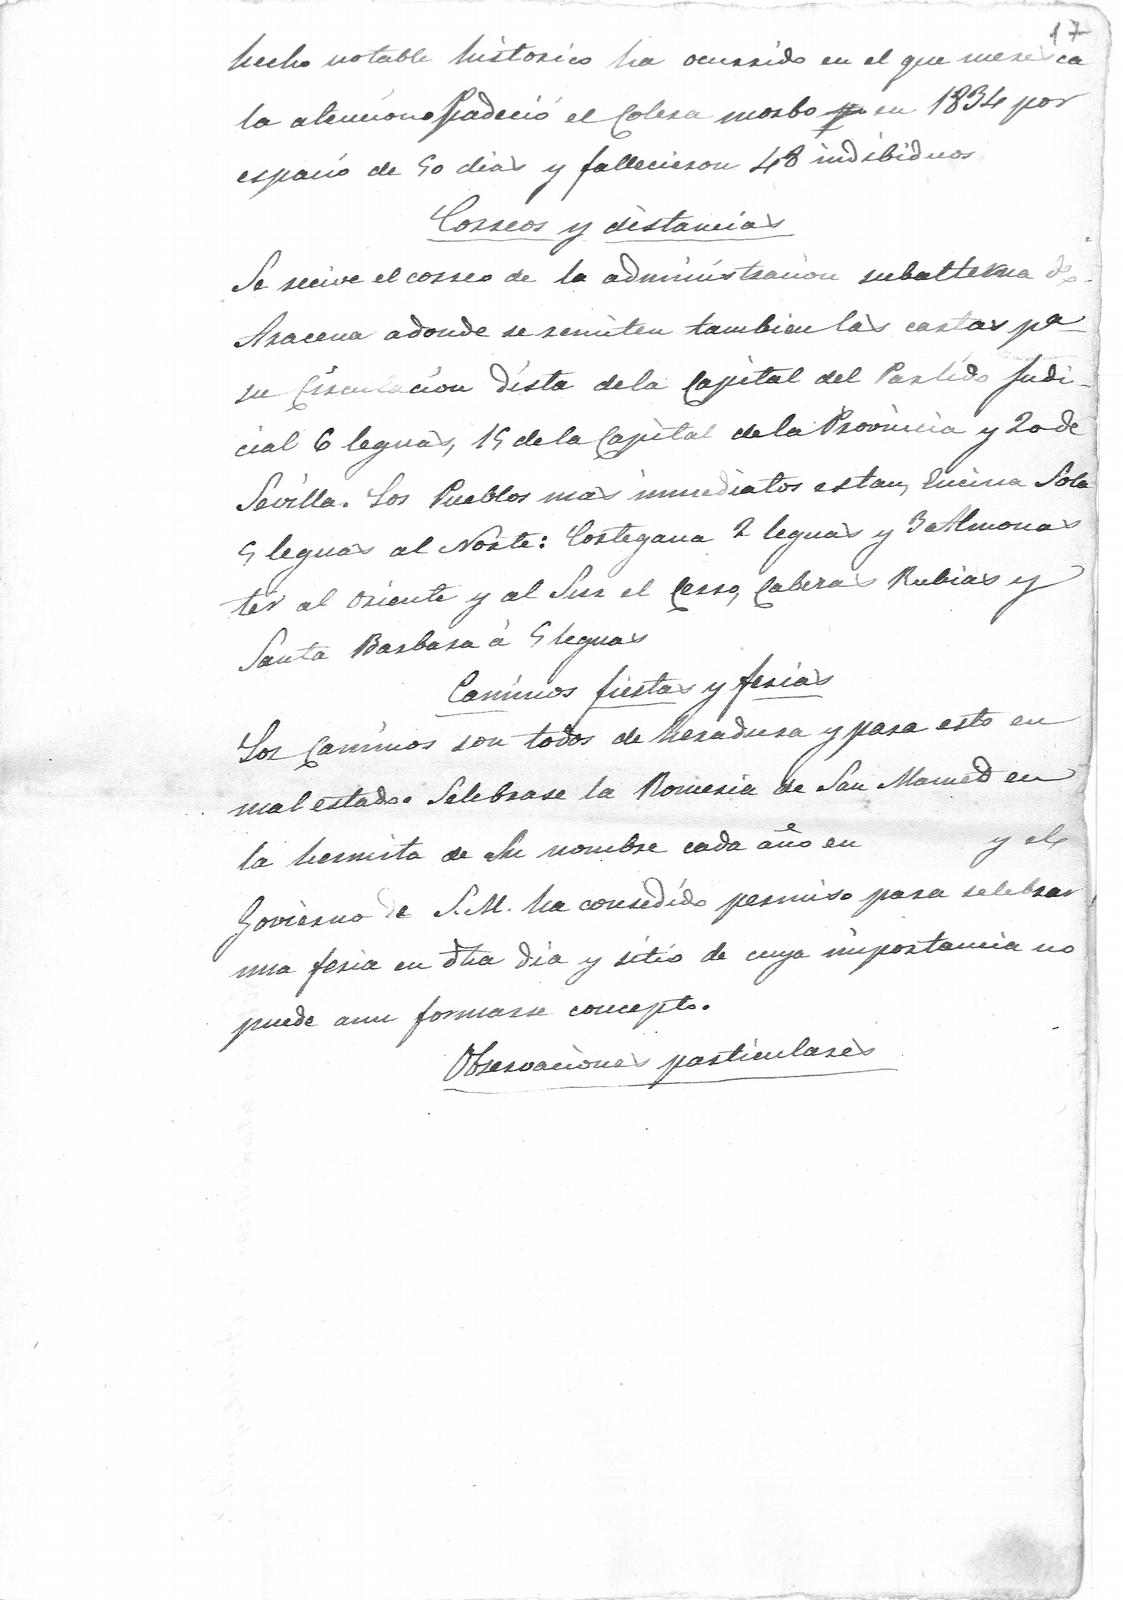 17
hecho notable historico ha ocurrido en el que meresca
la atencion Padeció el Colera morbo en 1834 por
espacio de 50 dias y fallecieron 48 indibiduos
Correos y distancias
Se recive el correo de la administracion subalterna de
Aracena adonde se remiten tambien las cartas pa
su Circulacion Dista de la Capital del Partido Judi-
cial 6 leguas, 15 de la Capital de la Provincia y 20 de
Sevilla. Los Pueblos mas inmediatos estan, Encina Sola
5 leguas al Norte: Cortegana 2 leguas y 3 a Almonas
ter al oriente y al Sur el Cerro, Cabezas Rubias y
Santa Barbara á 5 leguas
Caminos fiestas y ferias
Los Caminos son todos de heradura y para esto en
mal estado. Selebrase la Romeria de San Mamed en
la hermita de su nombre cada año en y el
Govierno de S.M. ha consedido permiso para selebrar
una feria en dha dia y sitio de cuya importancia no
puede aun formarse concepto.
Observaciones particulares